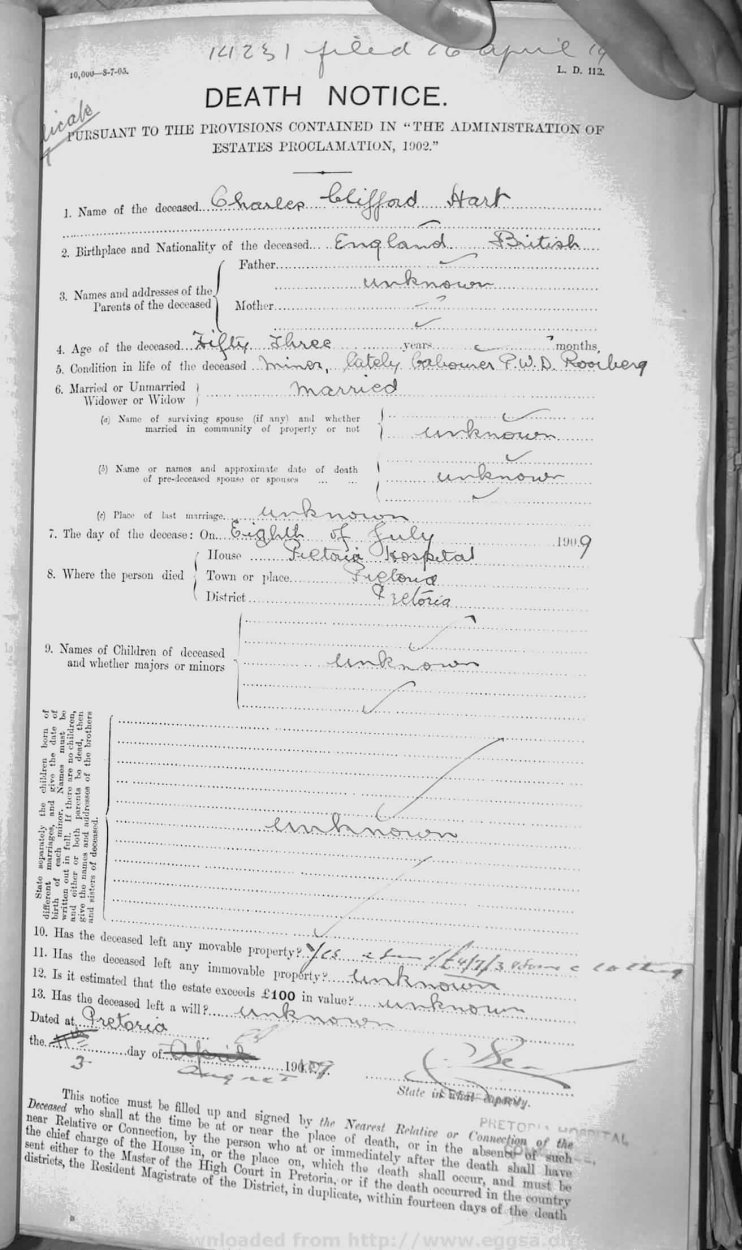 14231 filed 16 April 19
10,000—8-7-05.
L. D. 112.
DEATH NOTICE.
PURSUANT TO THE PROVISIONS CONTAINED IN "THE ADMINISTRATION OF
ESTATES PROCLAMATION, 1902."
1. Name of the deceased Charles Clifford Hart
2. Birthplace and Nationality of the deceased England British
3. Names and addresses of the Parents of the deceased
Father
unknown
Mother
4. Age of the deceased Fifty Three years months
5. Condition in life of the deceased Miner, lately Labourer P.W.D. Rooiberg
6. Married or Unmarried
Widower or Widow
married
(a) Name of surviving spouse (if any) and whether
married in community of property or not
unknown
(b) Name or names and approximate date of death
of pre-deceased spouse or spouses
unknown
(c) Place of last marriage unknown
7. The day of the decease: On Eighth of July 1909
8. Where the person died
House Pretoria Hospital
Town or place Pretoria
District Pretoria
9. Names of Children of deceased
and whether majors or minors
unknown
State separately the children born of
different marriages, and give the date of
birth of each minor. Names must be
written out in full. If there are no children,
and either or both parents be dead, then
give the names and addresses of the brothers
and sisters of deceased.
unknown
10. Has the deceased left any movable property? Yes
11. Has the deceased left any immovable property? Unknown
12. Is it estimated that the estate exceeds £100 in value? unknown
13. Has the deceased left a will? unknown
Dated at Pretoria
the 3 day of April August 1909.
State in what capacity.
PRETORIA HOSPITAL
This notice must be filled up and signed by the Nearest Relative or Connection of the
Deceased who shall at the time be at or near the place of death, or in the absence of such
near Relative or Connection, by the person who at or immediately after the death shall have
the chief charge of the House in, or the place on, which the death shall occur, and must be
sent either to the Master of the High Court in Pretoria, or if the death occurred in the country
districts, the Resident Magistrate of the District, in duplicate, within fourteen days of the death
wnloaded from http://www.eggsa.o